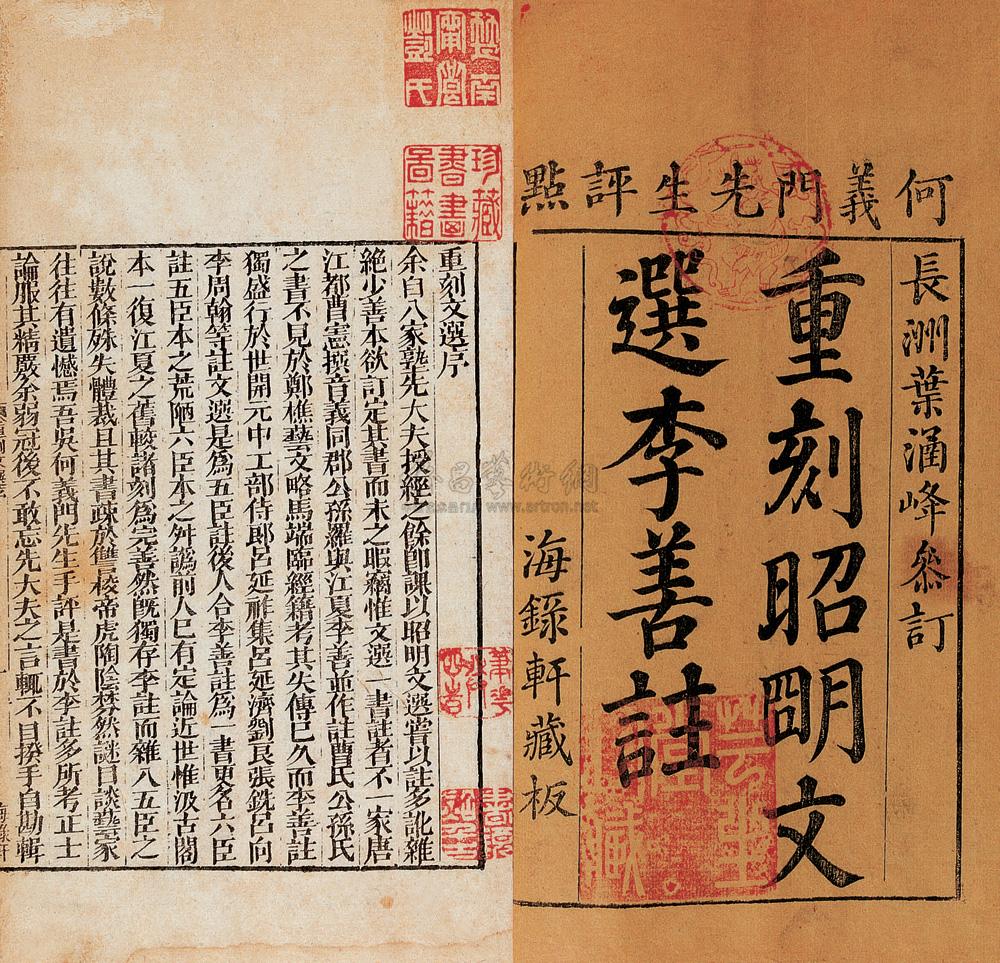 何義門先生評點
長洲葉涵峰叅訂
重刻昭明文
選李善註
海錄軒藏板
重刻文選序
余自入家塾先大夫授經之餘即課以昭明文選嘗以註多訛雜
絶少善本欲訂定其書而未之暇竊惟文選一書註者不一家唐
江都曹憲撰音義同郡公孫羅與江夏李善並作註曹氏公孫氏
之書不見於鄭樵藝文略馬端臨經籍考其失傳已久而李善註
獨盛行於世開元中工部侍郎呂延祚集呂延濟劉良張銑呂向
李周翰等註文選是爲五臣註後人合李善註爲一書更名六臣
註五臣本之荒陋六臣本之舛譌前人已有定論近世惟汲古閣
本一復江夏之舊較諸刻爲完善然旣獨存李註而雜入五臣之
說數條殊失體裁且其書疎於讐校帝虎陶陰棼然謎目談藝家
往往有遺憾焉吾吳何義門先生手評是書於李註多所考正士
論服其精嚴余弱冠後不敢忘先大夫之言輒不自揆手自勘輯
珍藏
書畫
圖籍